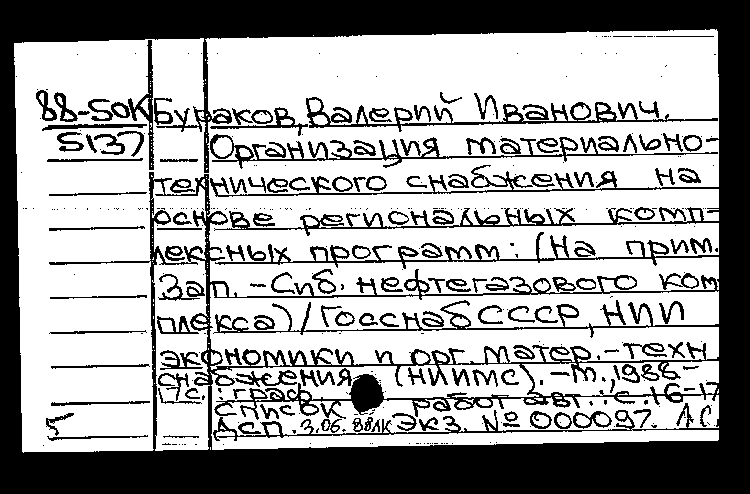 88-5ОК Бураков, Валерий Иванович.
5137 Организация материально-
технического снабжения на
основе региональных комп-
лексных программ: (На прим.
Зап.-Сиб. нефтегазового ком
плекса) / Госснаб СССР, НИИ
экономики и орг. матер.-техн
снабжения (НИИМС). -М., 1988-
17с.: граф.
список работ авт.: с.16-17
5 Дсп. 3.06.88 Экз. № 000097.